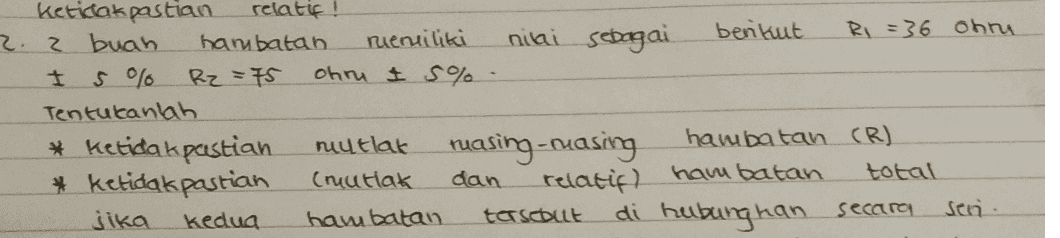 Ketidakpastian relatif!
2. 2 buah hambatan memiliki nilai sebagai berikut R1 = 36 ohm
± 5 % R2 = 75 ohm ± 5%.
Tentukanlah
* Ketidakpastian mutlak masing-masing hambatan (R)
* Ketidakpastian (mutlak dan relatif) hambatan total
jika kedua hambatan tersebut di hubungkan secara seri.